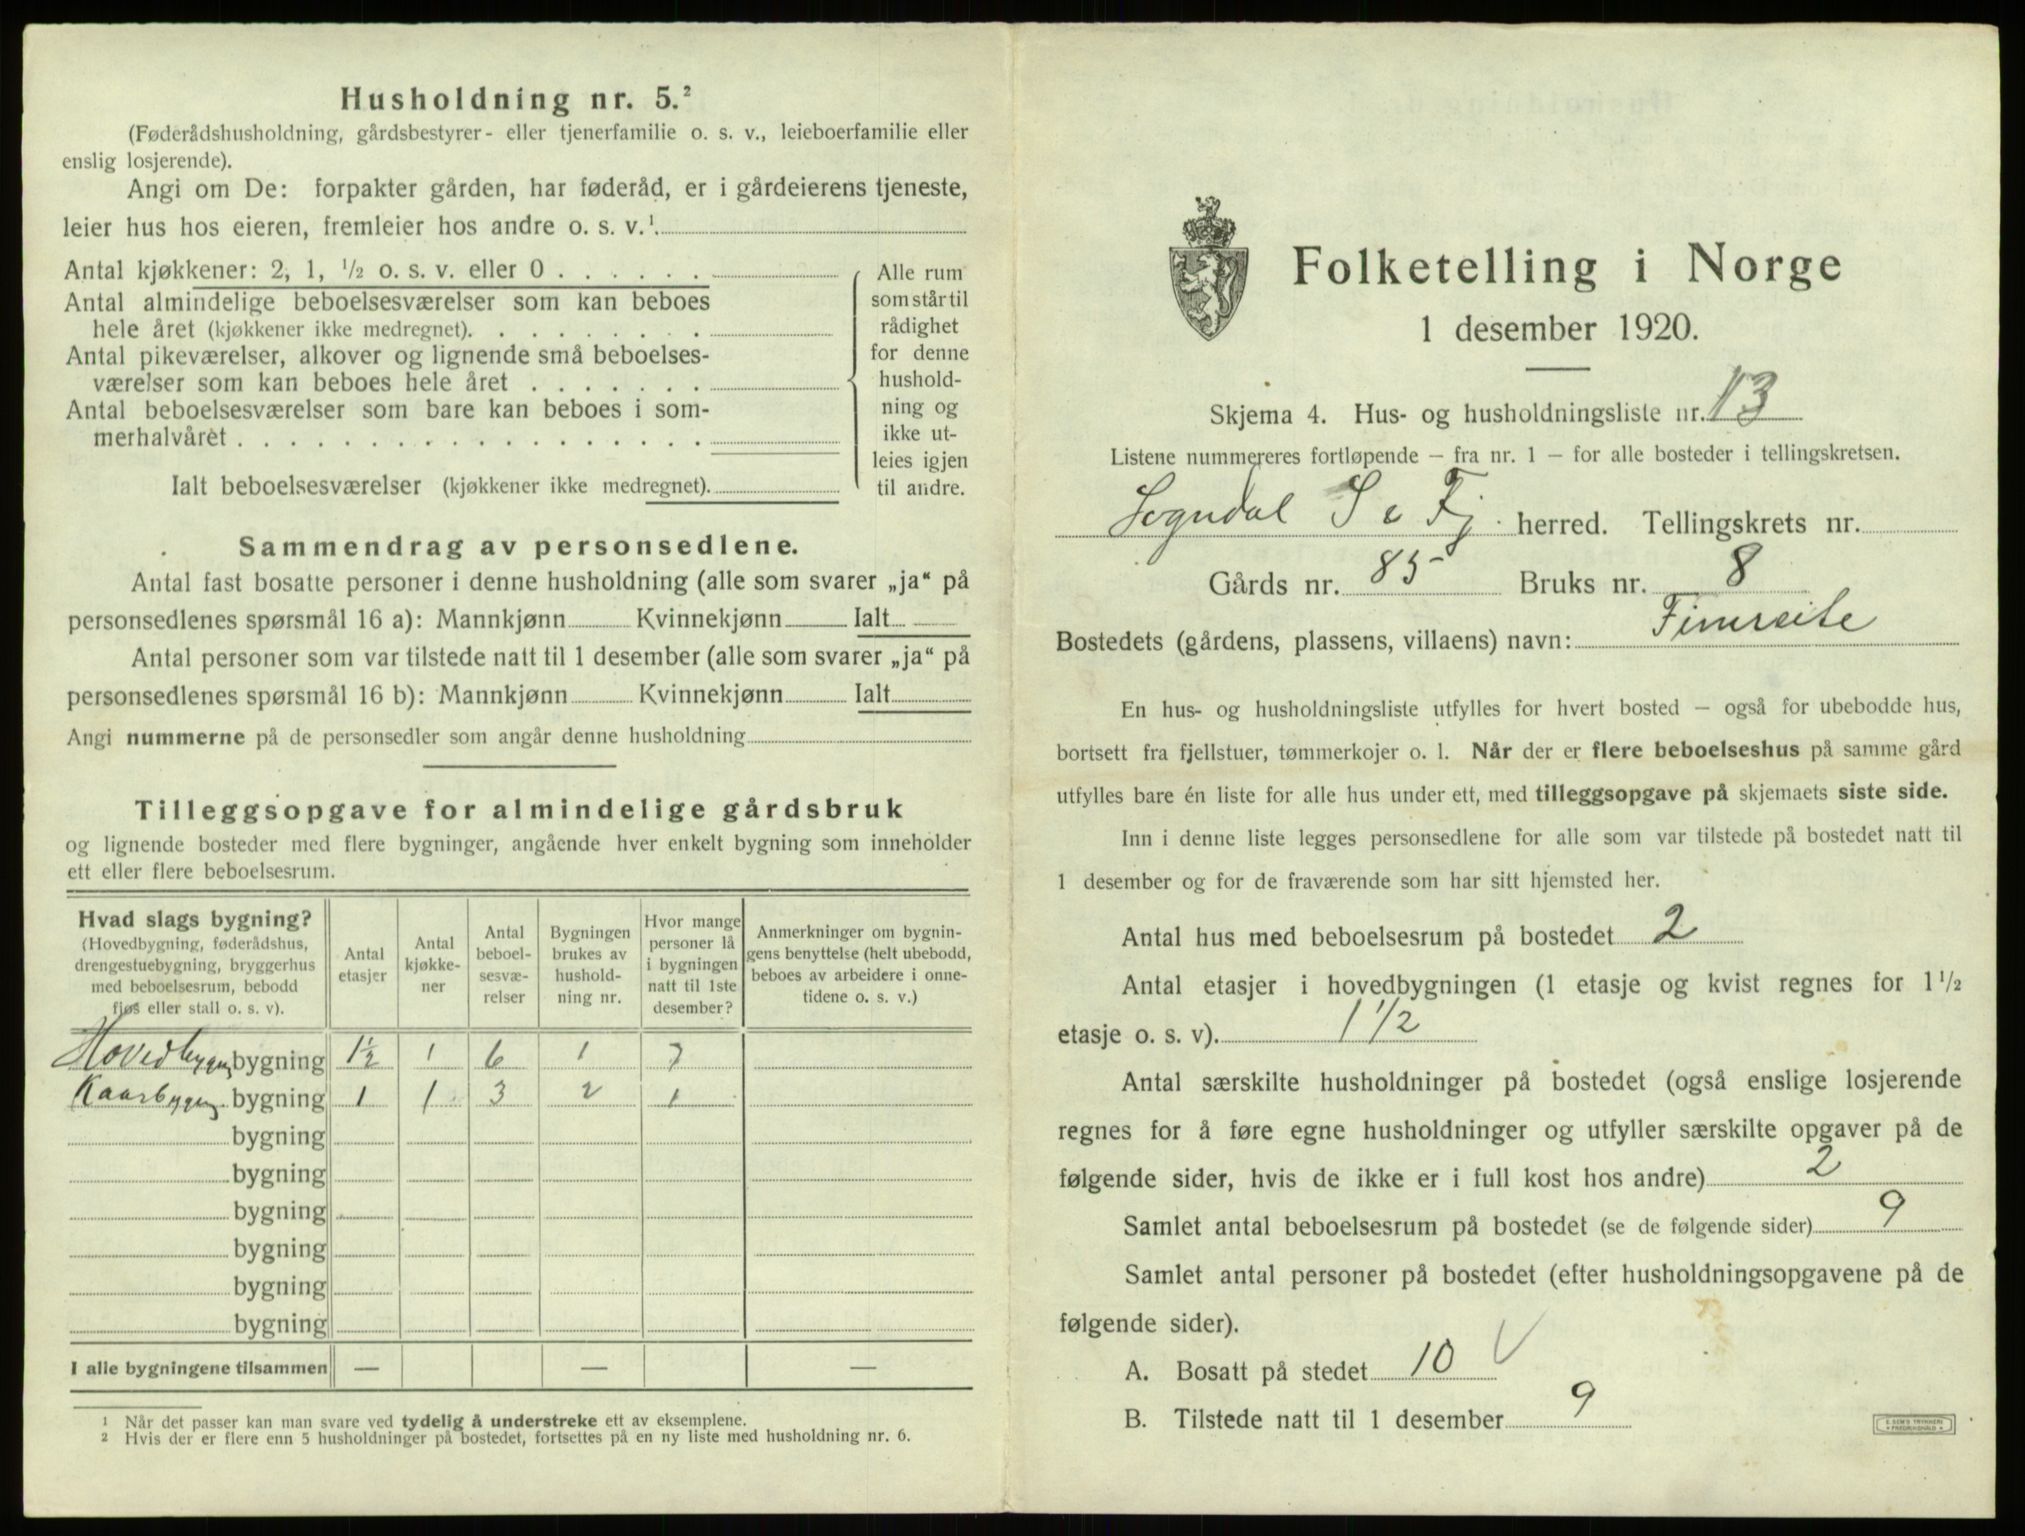 Husholdning nr. 5.²
(Føderådshusholdning, gårdsbestyrer- eller tjenerfamilie o. s. v., leieboerfamilie eller
enslig losjerende).
Angi om De: forpakter gården, har føderåd, er i gårdeierens tjeneste,
leier hus hos eieren, fremleier hos andre o. s. v.¹
Antal kjøkkener: 2, 1, ½ o. s. v. eller 0 . . . . . .
Antal almindelige beboelsesværelser som kan beboes
hele året (kjøkkener ikke medregnet). . . . . . . . .
Antal pikeværelser, alkover og lignende små beboelses-
værelser som kan beboes hele året . . . . . . .
Antal beboelsesværelser som bare kan beboes i som-
merhalvåret . . . . . . . . . . . . . . . . . .
Ialt beboelsesværelser (kjøkkener ikke medregnet).
Alle rum
som står til
rådighet
for denne
hushold-
ning og
ikke ut-
leies igjen
til andre.
Sammendrag av personsedlene.
Antal fast bosatte personer i denne husholdning (alle som svarer „ja“ på
personsedlenes spørsmål 16 a): Mannkjønn Kvinnekjønn Ialt
Antal personer som var tilstede natt til 1 desember (alle som svarer „ja“ på
personsedlenes spørsmål 16 b): Mannkjønn Kvinnekjønn Ialt
Angi nummerne på de personsedler som angår denne husholdning
Tilleggsopgave for almindelige gårdsbruk
og lignende bosteder med flere bygninger, angående hver enkelt bygning som inneholder
ett eller flere beboelsesrum.
Hvad slags bygning?
(Hovedbygning, føderådshus,
drengestuebygning, bryggerhus
med beboelsesrum, bebodd
fjøs eller stall o. s. v).
Antal
etasjer
Antal
kjøkke-
ner
Antal
beboel-
sesvæ-
relser
Bygningen
brukes av
hushold-
ning nr.
Hvor mange
personer lå
i bygningen
natt til 1ste
desember?
Anmerkninger om bygnin-
gens benyttelse (helt ubebodd,
beboes av arbeidere i onne-
tidene o. s. v.)
Hovedbygng bygning 1½ 1 6 1 7
Kaarbygng bygning 1 1 3 2 1
bygning
bygning
bygning
bygning
bygning
bygning
I alle bygningene tilsammen — — —
¹ Når det passer kan man svare ved tydelig å understreke ett av eksemplene.
² Hvis der er flere enn 5 husholdninger på bostedet, fortsettes på en ny liste med husholdning nr. 6.
Folketelling i Norge
1 desember 1920.
Skjema 4. Hus- og husholdningsliste nr. 13
Listene nummereres fortløpende — fra nr. 1 — for alle bosteder i tellingskretsen.
Sogndal S o Fj. herred. Tellingskrets nr.
Gårds nr. 85 Bruks nr. 8
Bostedets (gårdens, plassens, villaens) navn: Fimreite
En hus- og husholdningsliste utfylles for hvert bosted — også for ubebodde hus,
bortsett fra fjellstuer, tømmerkojer o. l. Når der er flere beboelseshus på samme gård
utfylles bare én liste for alle hus under ett, med tilleggsopgave på skjemaets siste side.
Inn i denne liste legges personsedlene for alle som var tilstede på bostedet natt til
1 desember og for de fraværende som har sitt hjemsted her.
Antal hus med beboelsesrum på bostedet 2
Antal etasjer i hovedbygningen (1 etasje og kvist regnes for 1½
etasje o. s. v). 1 1/2
Antal særskilte husholdninger på bostedet (også enslige losjerende
regnes for å føre egne husholdninger og utfyller særskilte opgaver på de
følgende sider, hvis de ikke er i full kost hos andre) 2
Samlet antal beboelsesrum på bostedet (se de følgende sider) 9
Samlet antal personer på bostedet (efter husholdningsopgavene på de
følgende sider).
A. Bosatt på stedet 10 V
B. Tilstede natt til 1 desember 9